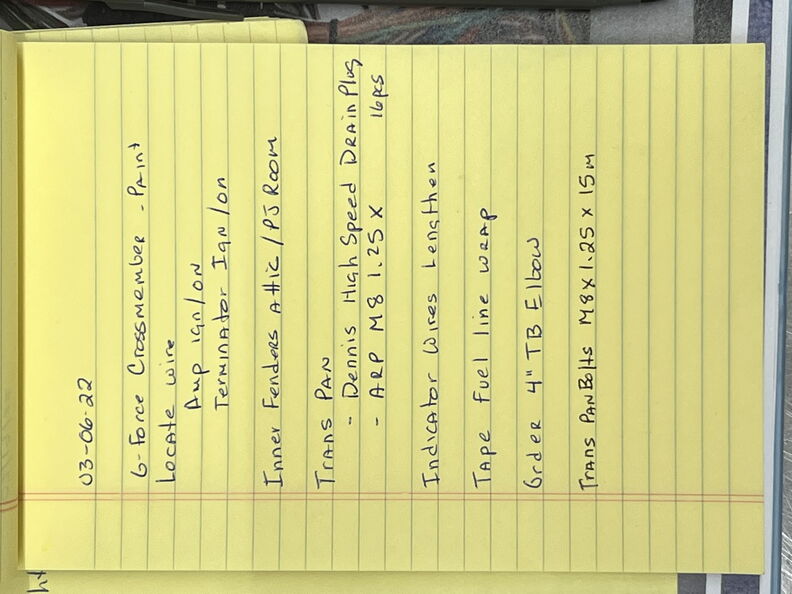 03-06-22
G-Force Crossmember - Paint
Locate wire
Amp ign/on
Terminator Ign/on
Inner Fenders Attic/PJ Room
Trans Pan
- Dennis High Speed Drain Plug
- ARP M8 1.25 x 16pcs
Indicator Wires Lengthen
Tape Fuel line wrap
Order 4" TB Elbow
Trans Pan Bolts M8x1.25 x 15m
ht